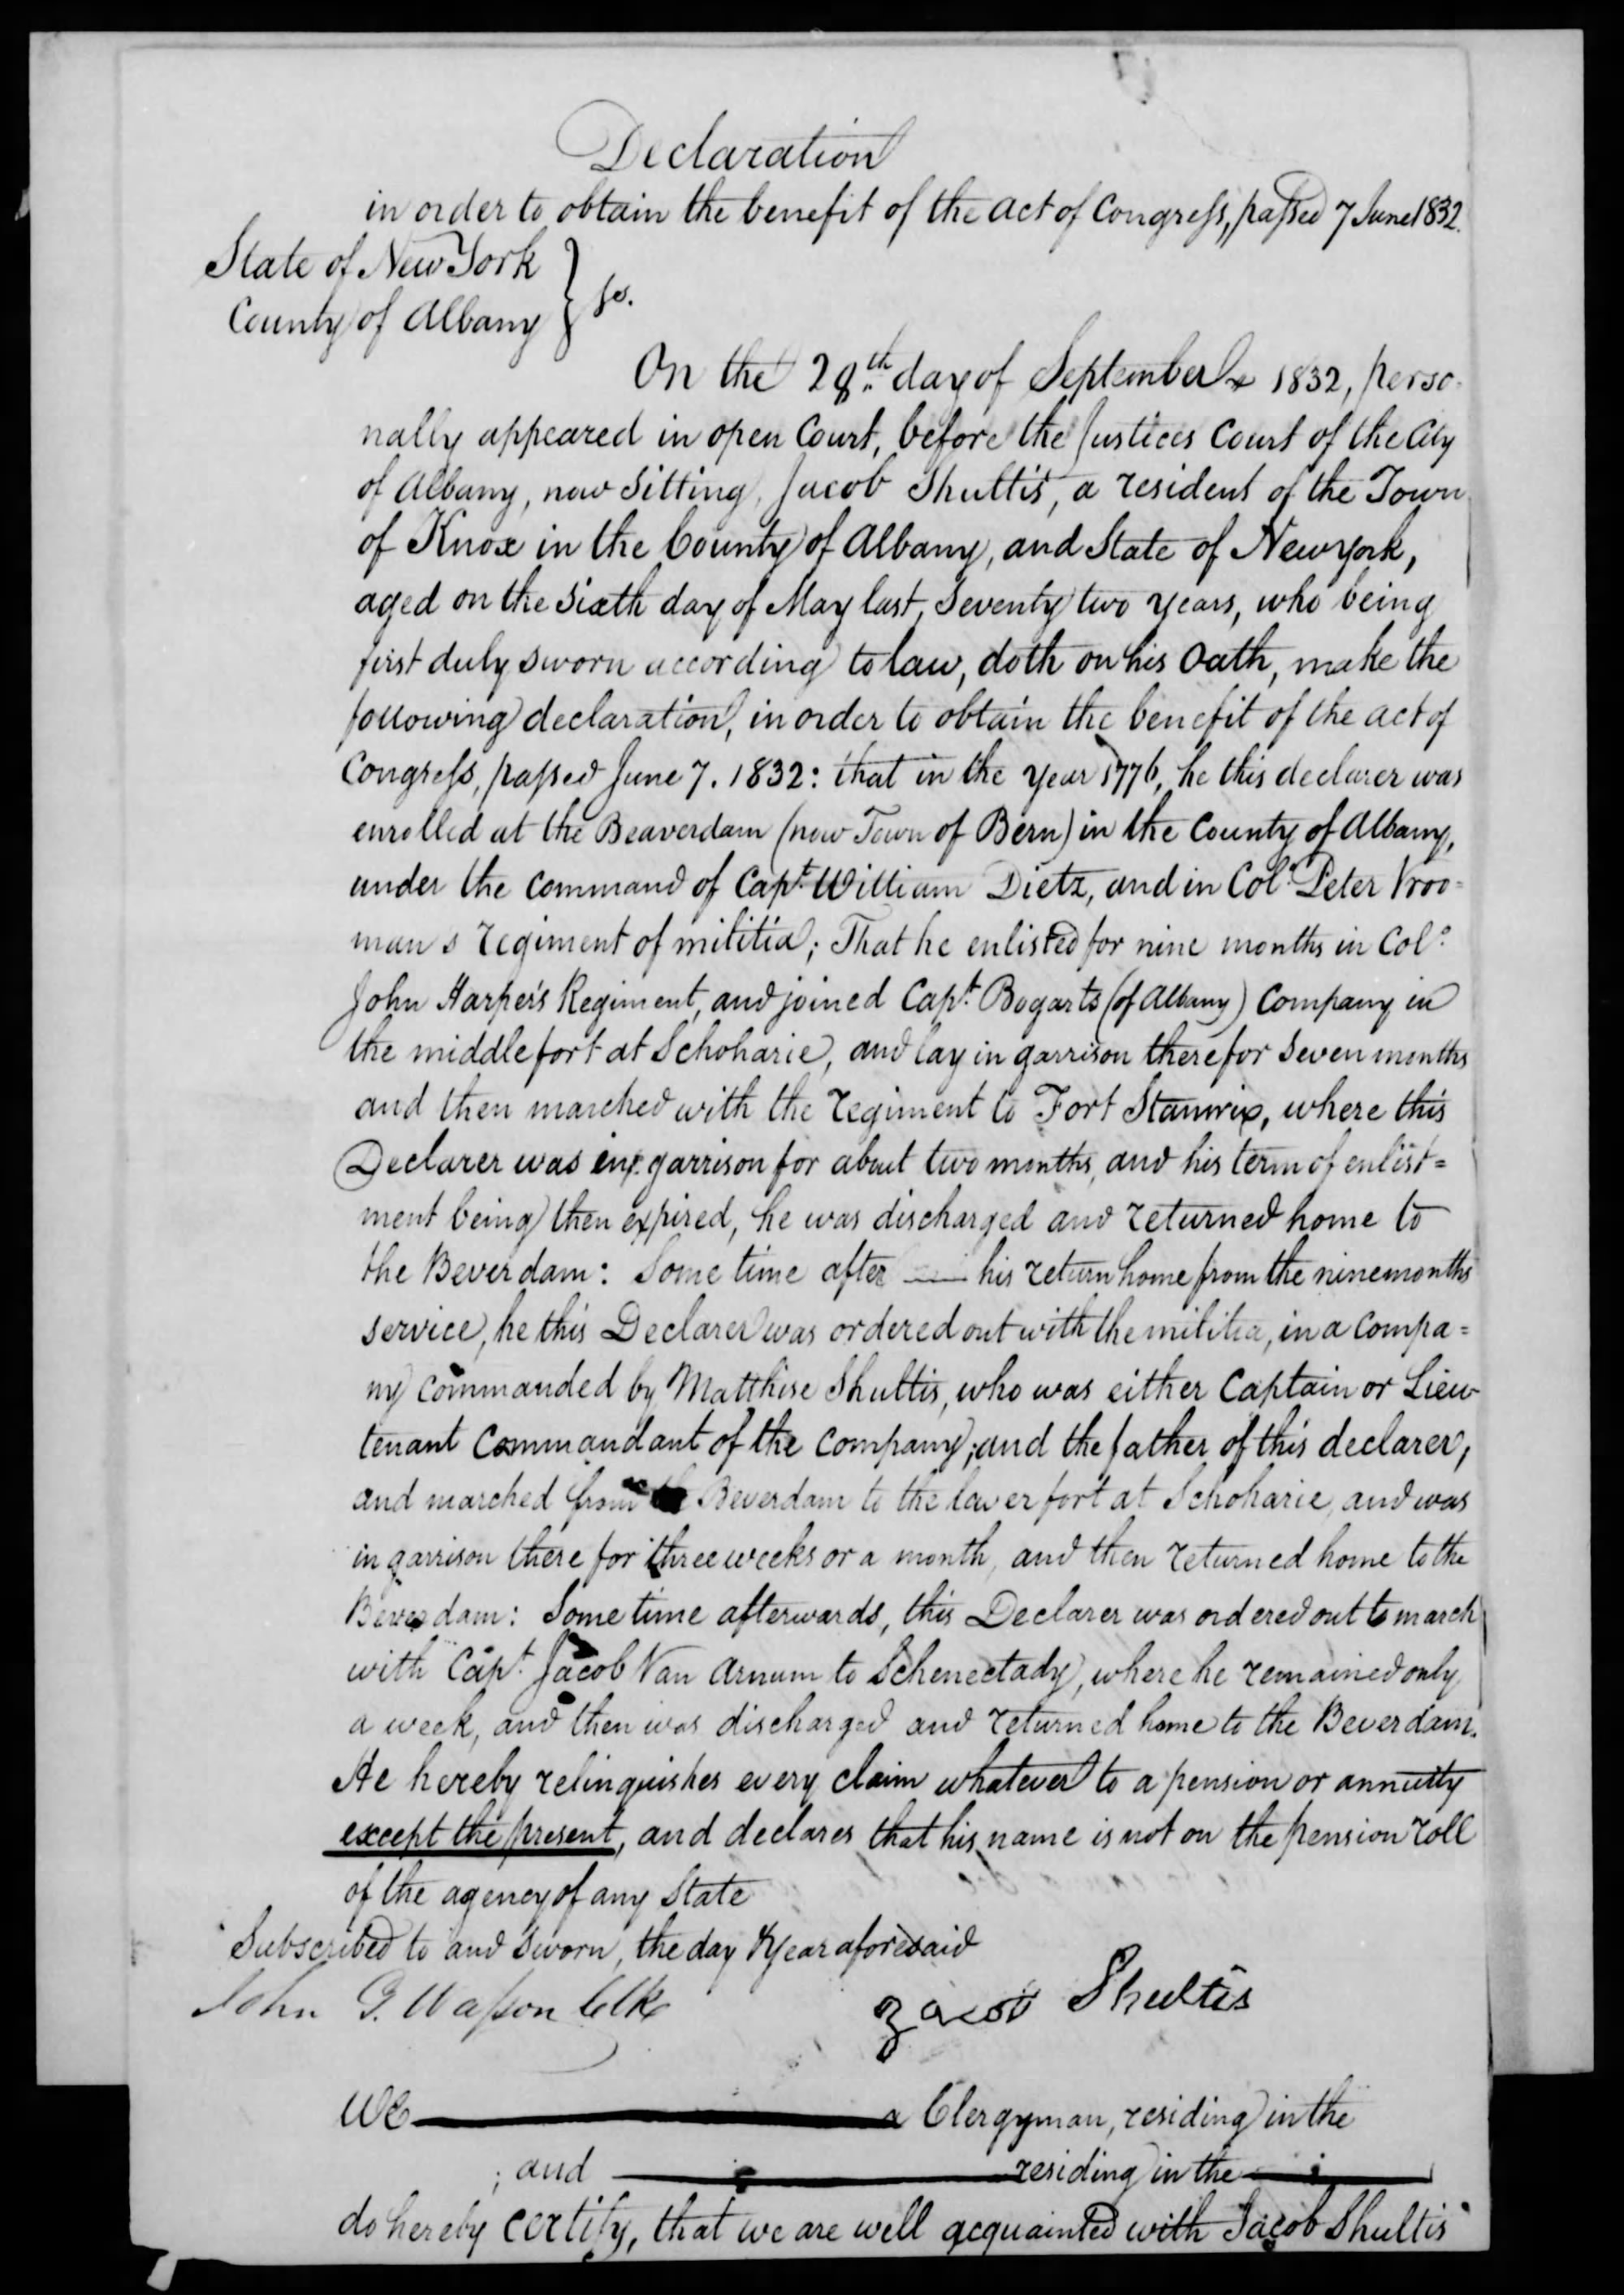 Declaration
in order to obtain the benefit of the act of Congress, passed 7 June 1832.
State of New York
County of Albany } ss.
On the 28th day of September 1832, perso-
nally appeared in open Court, before the Justices Court of the City
of Albany, now Sitting, Jacob Shultis, a resident of the Town
of Knox in the County of Albany, and State of New york,
aged on the Sixth day of May last, Seventy two years, who being
first duly sworn according to law, doth on his Oath, make the
following declaration, in order to obtain the benefit of the act of
Congress, passed June 7. 1832: that in the year 1776, he this declarer was
enrolled at the Beaverdam (now Town of Bern) in the County of Albany,
under the command of Capt. William Dietz, and in Colo. Peter Vroo=
man's regiment of militia; That he enlisted for nine months in Colo.
John Harper's Regiment, and joined Capt. Bogarts (of Albany) Company in
the middle fort at Schoharie, and lay in garrison there for Seven months
and then marched with the regiment to Fort Stanwix, where this
Declarer was in garrison for about two months, and his term of enlist=
ment being then expired, he was discharged and returned home to
the Beverdam: Some time after his return home from the nine months
service, he this Declarer was ordered out with the militia, in a Compa=
ny commanded by Matthise Shultis, who was either Captain or Lieu-
tenant Commandant of the Company; and the father of this declarer,
and marched from Beverdam to the lower fort at Schoharie, and was
in garrison there for three weeks or a month, and then returned home to the
Beverdam: Some time afterwards, this Declarer was ordered out to march
with Capt. Jacob Van Arnum to Schenectady, where he remained only
a week, and then was discharged and returned home to the Beverdam.
He hereby relinquishes every claim whatever to a pension or annuity
except the present, and declares that his name is not on the pension roll
of the agency of any State
Subscribed to and Sworn, the day & year aforesaid
John G. Wasson Clk
Jacob Shultis
We a Clergyman, residing in the
; and residing in the
do hereby certify, that we are well acquainted with Jacob Shultis